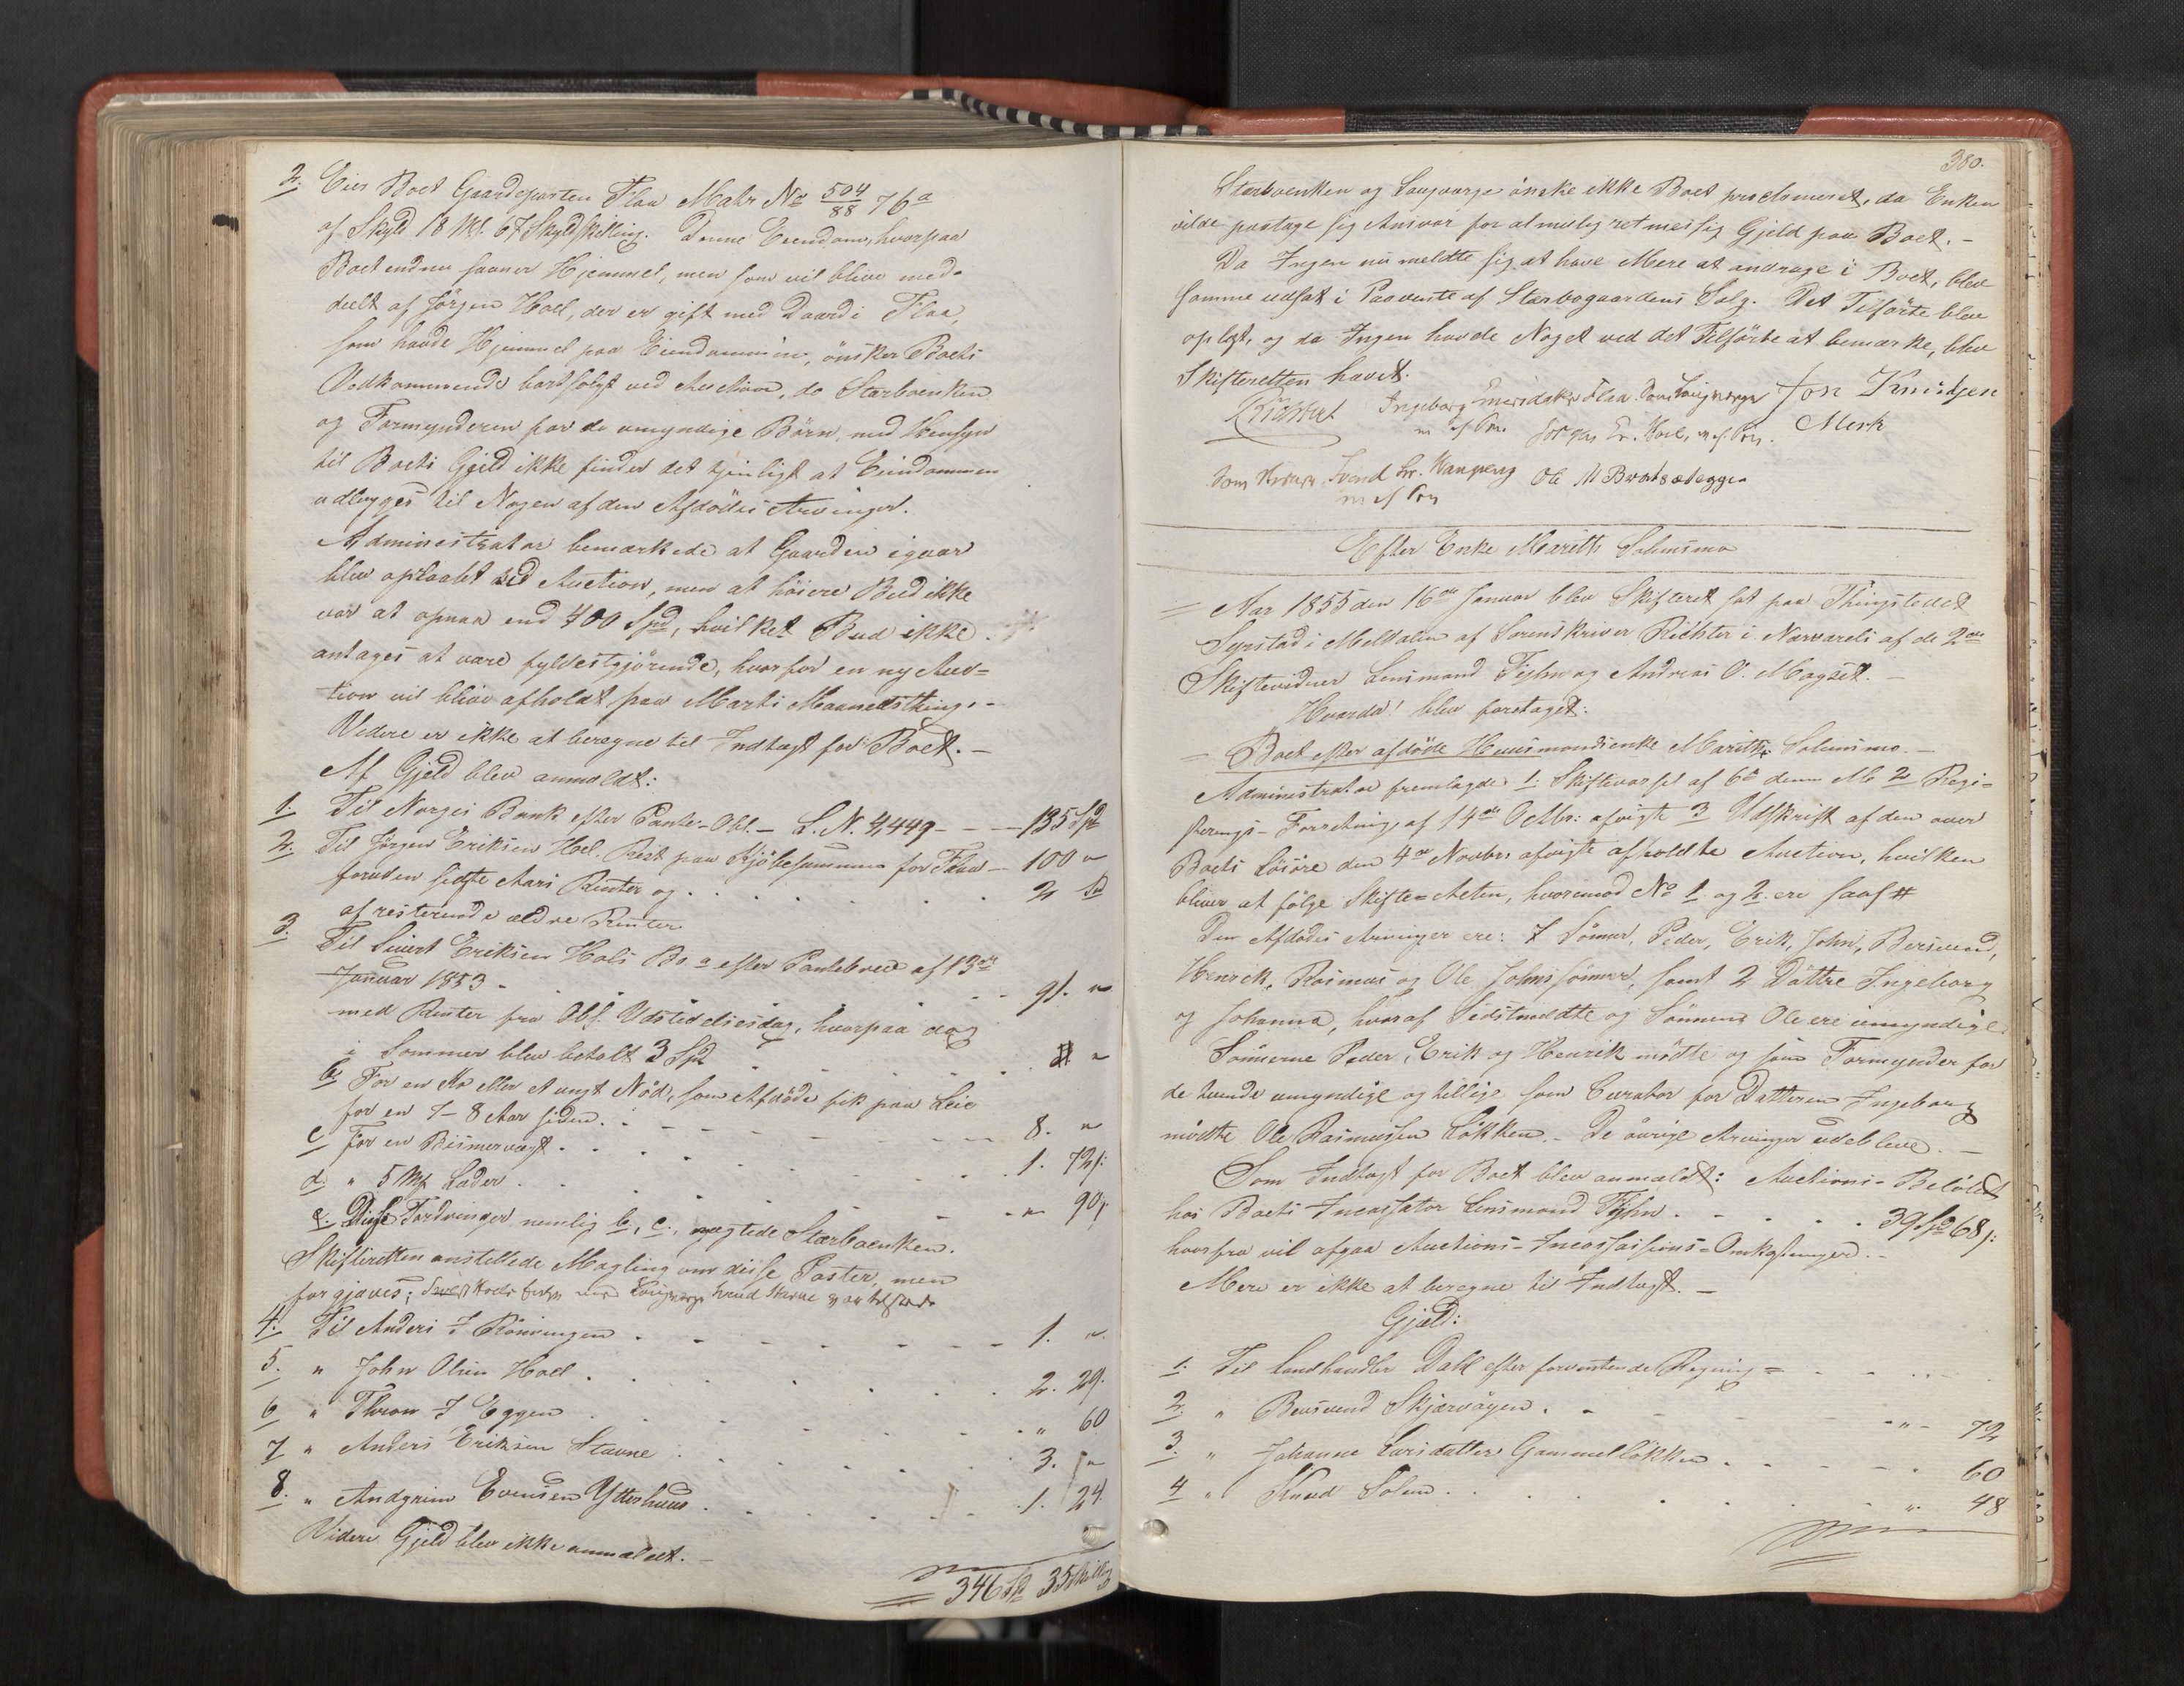 2. Eier Boet Gaardeparten Flaa Matr No 504/88 76a
af Skyld 18 Mk. 67 Skyldskilling. Denne Eiendom, hvorpaa
Boet endnu savner Hjemmel, men som vil blive med-
deelt af Jørgen Hoel, der er gift med Daardi Flaa,
som havde Hjemmel paa Eiendommen, ønsker Boets
Vedkommende bortsolgt ved Auction, da Stærboenken
og Formynderen for de umyndige Børn, med Hensyn
til Boets Gjeld ikke finder det tjenligt at Eiendommen
udlægges til Nogen af den Afdødes Arvinger.
Administrator bemærkede at Gaarden igaar
blev opraabt ved Auction, men at høiere Bud ikke
var at opnaa end 400 Spd, hvilket Bud ikke
antages at være fyldestgjørende, hvorfor en ny Auc-
tion vil blive afholdt paa Marts Maanedsthing. -
Videre er ikke at beregne til Indtægt for Boet. -
Af Gjeld blev anmeldt:
1. Til Norges Bank efter Pante-Obl. - L. N. 4,449 - - - 135 Spd
2. Til Jørgen Eriksen Hoel, Rest paa Kjøbesummen for Flaa - 100 "
foruden sidste Aars Renter og . . . 2 Spd
af resterende ældre Renter
3. Til Sivert Eriksen Hols Bo a efter Pantebrev af 13de
Januar 1853 - . . . 91. "
med Renter fra Obl. Udstedelsesdag, hvorpaa dog
i Sommer blev betalt 3 Spd
b. For en Ko eller et ungt Nød, som Afdøde fik paa Leie
for en 7-8 Aar siden. . . . 8. "
c For en Bismervægt . . . 1. 72 s:
d. " 5 Mk Læder . . . " 90 s.
e. Disse Fordringer nemlig b, c., nægtede Stærboenken.
Skifteretten anstillede Mægling om disse Poster, men
forgjæves;
4. Til Anders J Rønningen . . . 1. "
5. " John Olsen Hoel . . . 2. 29.
6 " Thron J Eggen . . . " 60
7 " Anders Eriksen Stavne . . . 3. "
8. " Andgrim Evensen Ytterhuus . . . 1. 24
Videre Gjeld blev ikke anmeldet. -
346 Spd 35 Skilling
380.
Stærboenken og Laugværge ønske ikke Boet proclameret, da Enken
vilde paatage sig Ansvar for al mulig retmessig Gjeld paa Boet. -
Da Ingen nu meldte sig at have Mere at andrage i Boet, blev
samme udsat i Paavente af Stærbogaardens Salg. Det Tilførte blev
oplæst, og da Ingen havde Noget ved det Tilførte at bemærke, blev
Skifteretten hævet.
Richter Ingeborg Flaa Laugværge Jon Knudsen
m. f. Pen. Jørgen Er. Hoel, m. f. Pen. Merk
Som Svend Ole M Bratsetegge
m. f. Pen
Efter Enke Marith Solemsmo
= Aar 1855 den 16de Januar blev Skifteret sat paa Thingstedet
Syrstad i Meldalen af Sorenskriver Richter i Nærværels af de 2de
Skiftevidner Lensmand Tyhn og Andreas O. Magset. -
Hvorda! blev foretaget:
= Boet efter afdøde Huusmandsenke Marith Solemsmo. -
Administrator fremlagde 1. Skiftevarsel af 6te denne M 2 Regi-
sterings-Forretning af 14de Octbr: afvigte 3 Udskrift af den over
Boets Løsøre den 4de Novbr. afvigte afholdte Auction, hvilken
bliver at følge Skifte-Acten, hvorimod No 1 og 2. ere saal #
Den Afdødes Arvinger ere: 7 Sønner, Peder, Erik, John, Bersvend,
Henrik, Rasmus og Ole Johnssønner, samt 2 Døttre Ingeborg
og Johanna, hvoraf Sidstmeldte og Sønnen Ole ere umyndige.
Sønnerne Peder, Erik og Henrik mødte og som Formynder for
de tvende umyndige og tillige som Curator for Datteren Ingeborg
mødte Ole Rasmussen Løkken. - De øvrige Arvinger udebleve. -
Som Indtægt for Boet blev anmeldt: Auctions-Beløbet
hos Boets Incassator Lensmand Tyhn . . . 39 Spd 68 s:
hvorfra vil afgaa Auctions-Incassations-Omkostninger. -
Mere er ikke at beregne til Indtægt. -
Gjæld:
1. Til Landhandler Dahl efter forventende Regning = - - .
2. " Bersvend Skjærvøyen . - - " - 72
3. " Johanne Larsdatter Gammelløkken . . . 60
4 " Knud Solem . . . " 48